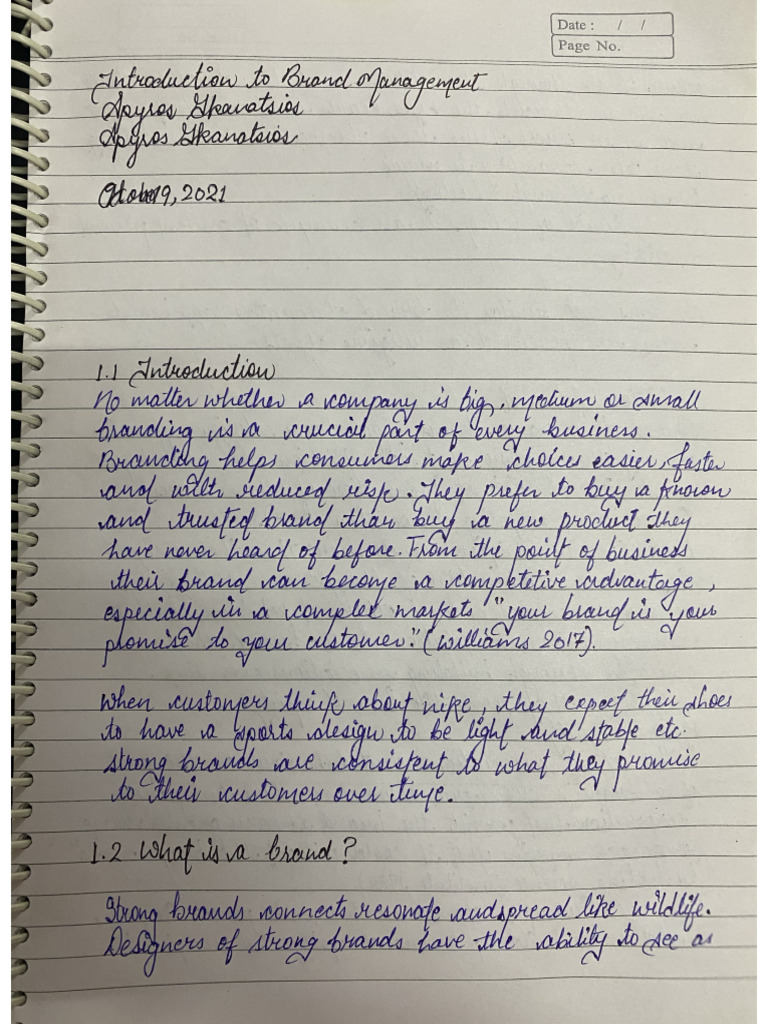 Date : / /
Page No.
Introduction to Brand Management
Spyros Gkanatsios
Spyros Gkanatsios
October 9, 2021
1.1 Introduction
No matter whether a company is big, medium or small
branding is a crucial part of every business.
Branding helps consumers make choices easier, faster
and with reduced risk. They prefer to buy a known
and trusted brand than buy a new product they
have never heard of before. From the point of business
their brand can become a competetive advantage,
especially in a complex markets "your brand is your
promise to your customer." (Williams 2017).
When customers think about nike, they expect their shoes
to have a sports design to be light and stable etc.
strong brands are consistent to what they promise
to their customers over time.
1.2 What is a brand?
Strong brands connects resonate and spread like wildlife.
Designers of strong brands have the ability to see as